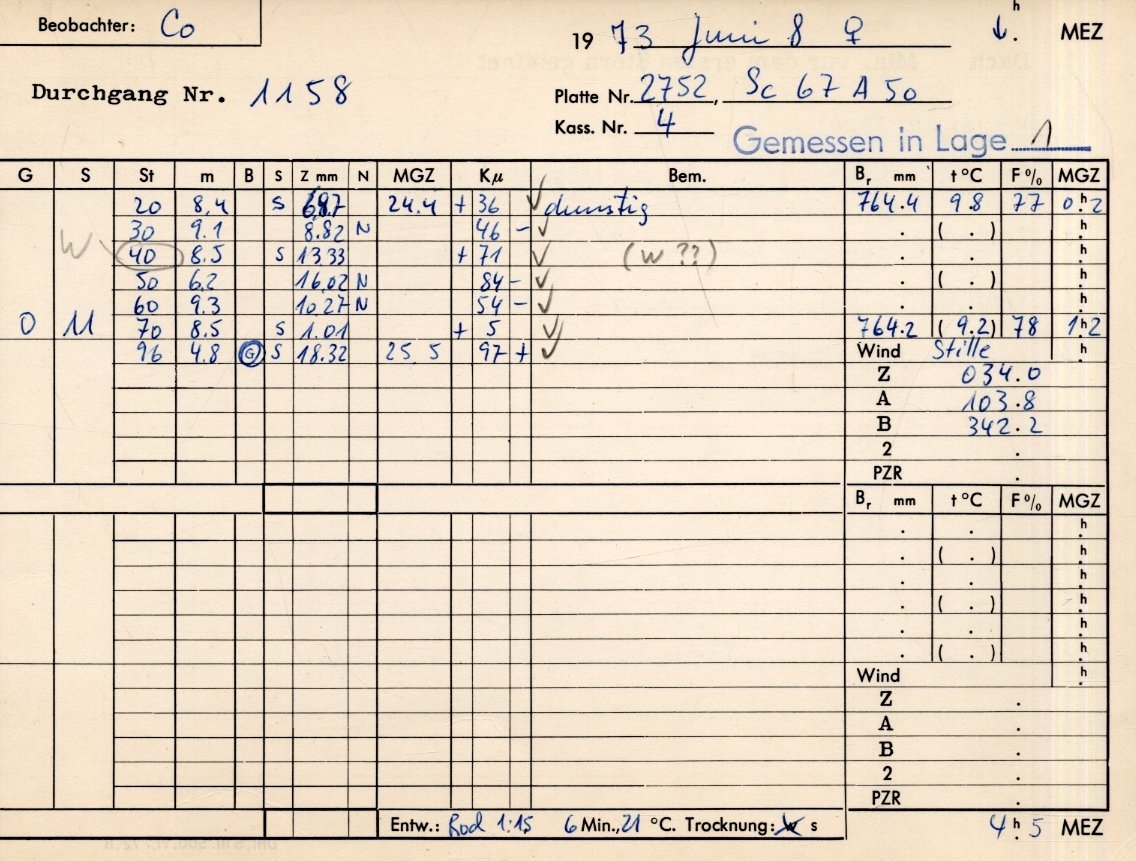 Beobachter: Co
19 73 Juni 8 ♀ ↓ h. MEZ
Durchgang Nr. 1158
Platte Nr. 2752, Sc 67 A 50
Kass. Nr. 4
Gemessen in Lage 1
G S St m B S Z mm N MGZ Kμ Bem. Br mm t °C F % MGZ
20 8.4 S 24.4 + 36 √ dunstig 764.4 9.8 77 0h.2
30 9.1 8.82 N 46 - √ ( . ) h.
W 40 8.5 S 13.33 + 71 √ (W ??) . . h.
50 6.2 16.02 N 84 - √ ( . ) h.
60 9.3 10.27 N 54 - √ . . h.
0 11 70 8.5 S 1.01 + 5 √ 764.2 (9.2) 78 1h2
96 4.8 G S 18.32 25.5 97 + √ Wind Stille h.
Z 034.0
A 103.8
B 342.2
2 .
PZR .
Br mm t °C F % MGZ
. . h.
. ( . ) h.
. . h.
. ( . ) h.
. . h.
. ( . ) h.
Wind h.
Z .
A .
B .
2 .
PZR .
Entw.: Rod 1:15 6 Min., 21 °C. Trocknung: w s 4h.5 MEZ